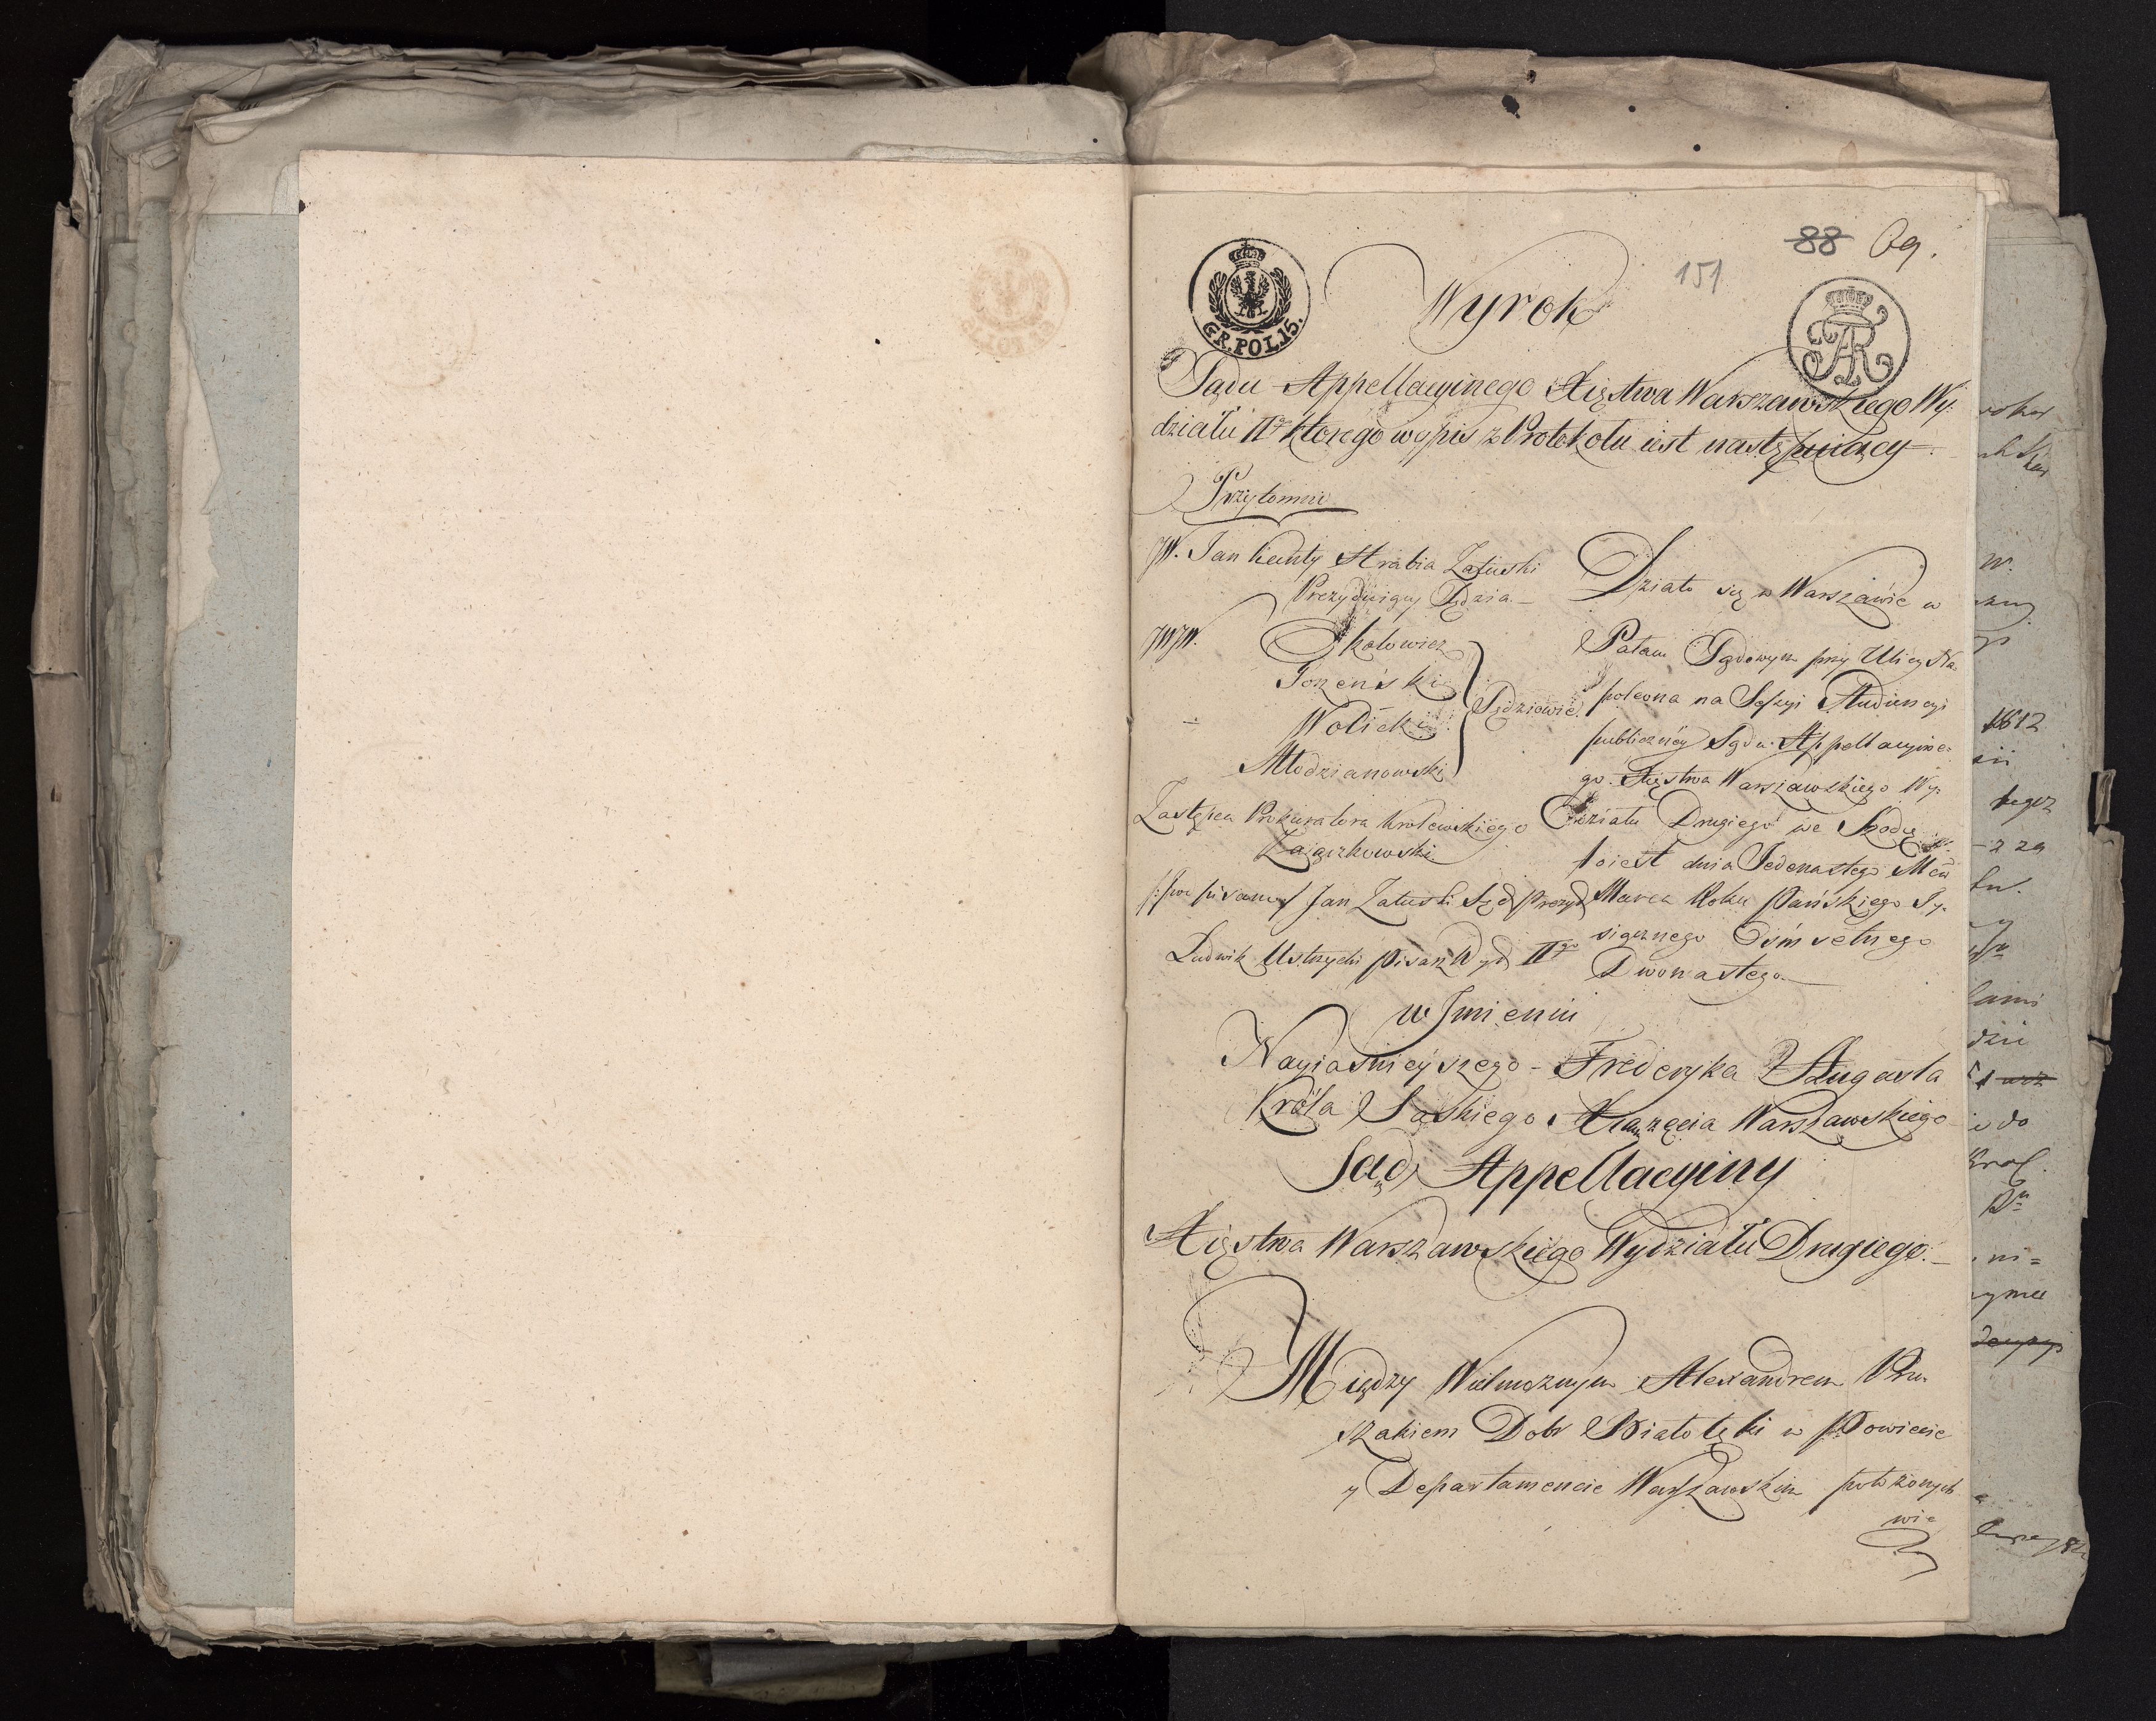 88 69.
151
GR. POL. 15.
FAR
Wyrok
Sądu Appellacyinego Xięstwa Warszawskiego Wy:
działu IIgo którego wypis z Protokołu iest następuiący.
Przytomni
JW. Jan Kanty Hrabia Załuski
Prezyduiący Sędzia
JWJW.
Skałowicz
Torzeński
Wolicki
Młodzianowski
Sędziowie.
Zastępca Prokuratora Królewskiego
Zaiączkowski
podpisano Jan Załuski Sęd Prezyd
Ludwik Ustrzycki Pisarz Wyd IIgo
Działo się w Warszawie w
Pałacu Sądowym przy Ulicy Na
poleona na Sessyi Audiencyi
publiczney Sądu Appellacyine:
go Xięstwa Warszawskiego Wy:
działu Drugiego we Srodę
to iest dnia Jedenastego Mca
Marca Roku Pańskiego Ty:
siącznego Ośmsetnego
Dwonastego
w Imieniu
Nayiaśnieyszego Fryderyka Augusta
Króla Saskiego Xiążęcia Warszawskiego
Sąd Appellacyiny
Xięstwa Warszawskiego Wydziału Drugiego.
Między Wielmożnym Alexandrem Pru
szakiem Dobr Białołęki w Powiecie
y Departamencie Warszawskim położonych
wie
1812
z za
do